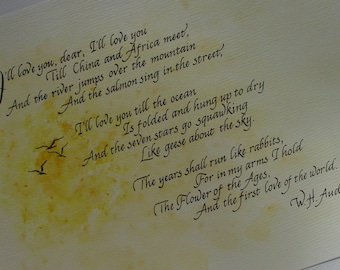 I'll love you, dear, I'll love you
Till China and Africa meet,
And the river jumps over the mountain
And the salmon sing in the street,
I'll love you till the ocean
Is folded and hung up to dry
And the seven stars go squawking
Like geese about the sky.
The years shall run like rabbits,
For in my arms I hold
The Flower of the Ages,
And the first love of the world.
W.H. Aud